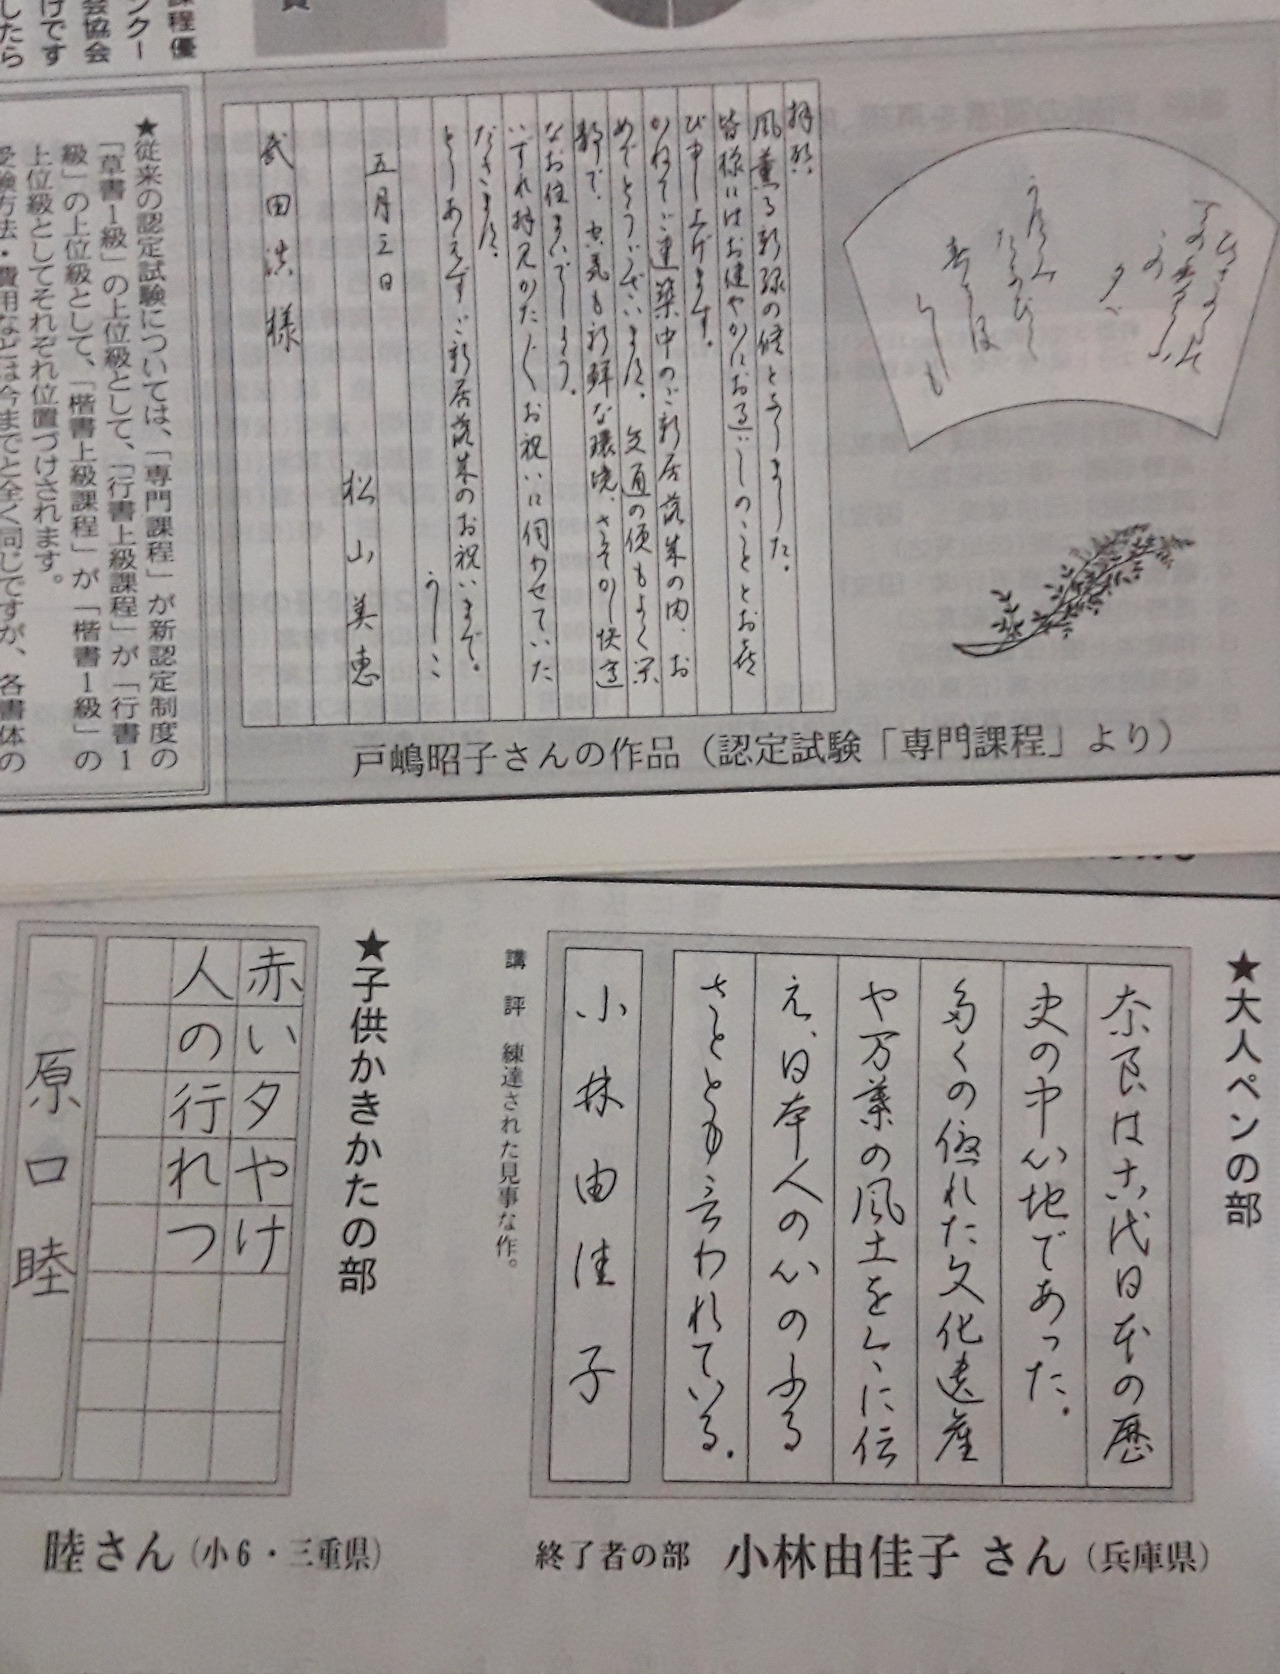 拝啓
風薫る新緑の候となりました。
皆様にはお健やかにお過ごしのこととお喜
び申し上げます。
かねてご建築中のご新居落成の由、お
めでとうございます。交通の便もよく閑
静で、空気も新鮮な環境、さぞかし快適
なお住まいでしょう。
いずれ拝見かたがたお祝いに伺わせていた
だきます。
とりあえずご新居落成のお祝いまで。
かしこ
五月三日
松山美恵
武田洪様
戸嶋昭子さんの作品（認定試験「専門課程」より）
課程優
★従来の認定試験については、「専門課程」が新認定制度の
「草書1級」の上位級として、「行書上級課程」が「行書1
級」の上位級として、「楷書上級課程」が「楷書1級」の
上位級としてそれぞれ位置づけされます。
受験方法・費用などは今までと全く同じですが、各書体の
★大人ペンの部
奈良は古代日本の歴
史の中心地であった。
多くの優れた文化遺産
や万葉の風土を今に伝
え、日本人の心のふる
さととも言われている。
小林由佳子
講評 練達された見事な作。
終了者の部 小林由佳子さん（兵庫県）
★子供かきかたの部
赤い夕やけ
人の行れつ
原口睦
睦さん（小6・三重県）